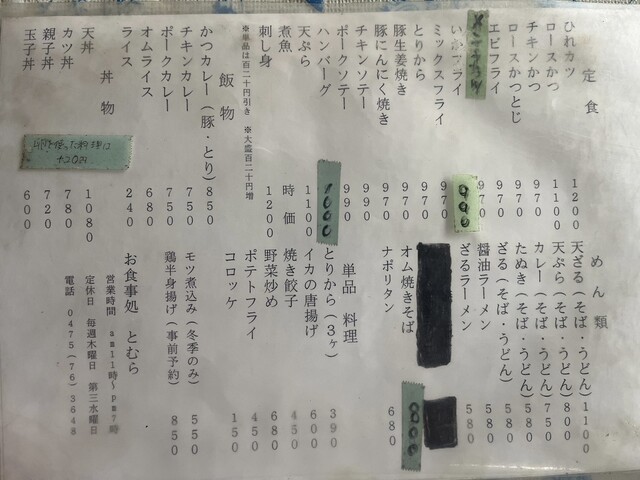 定食
ひれカツ 1200
ロースかつ 1100
チキンかつ 970
ロースかつとじ 970
エビフライ 970
970
いかフライ 990
ミックスフライ 970
とりから 970
豚生姜焼き 970
豚にんにく焼き 970
チキンソテー 990
ポークソテー 990
ハンバーグ 1000
天ぷら 1100
煮魚 時価
刺し身 1200
※単品は百二十円引き ※大盛百二十円増
飯物
かつカレー(豚・とり) 850
チキンカレー 750
ポークカレー 750
オムライス 680
ライス 240
丼物
天丼 1080
カツ丼 780
親子丼 720
玉子丼 600
+20円
めん類
天ざる(そば・うどん) 1100
天ぷら(そば・うどん) 800
カレー(そば・うどん) 750
たぬき(そば・うどん) 580
ざる(そば・うどん) 580
醤油ラーメン 580
ざるラーメン 580
オム焼きそば 800
ナポリタン 680
単品料理
とりから(3ヶ) 390
イカの唐揚げ 600
焼き餃子 450
野菜炒め 680
ポテトフライ 450
コロッケ 150
モツ煮込み(冬季のみ) 550
鶏半身揚げ(事前予約) 850
お食事処 とむら
営業時間 am11時~pm7時
定休日 毎週木曜日 第三水曜日
電話 0475(76)3648